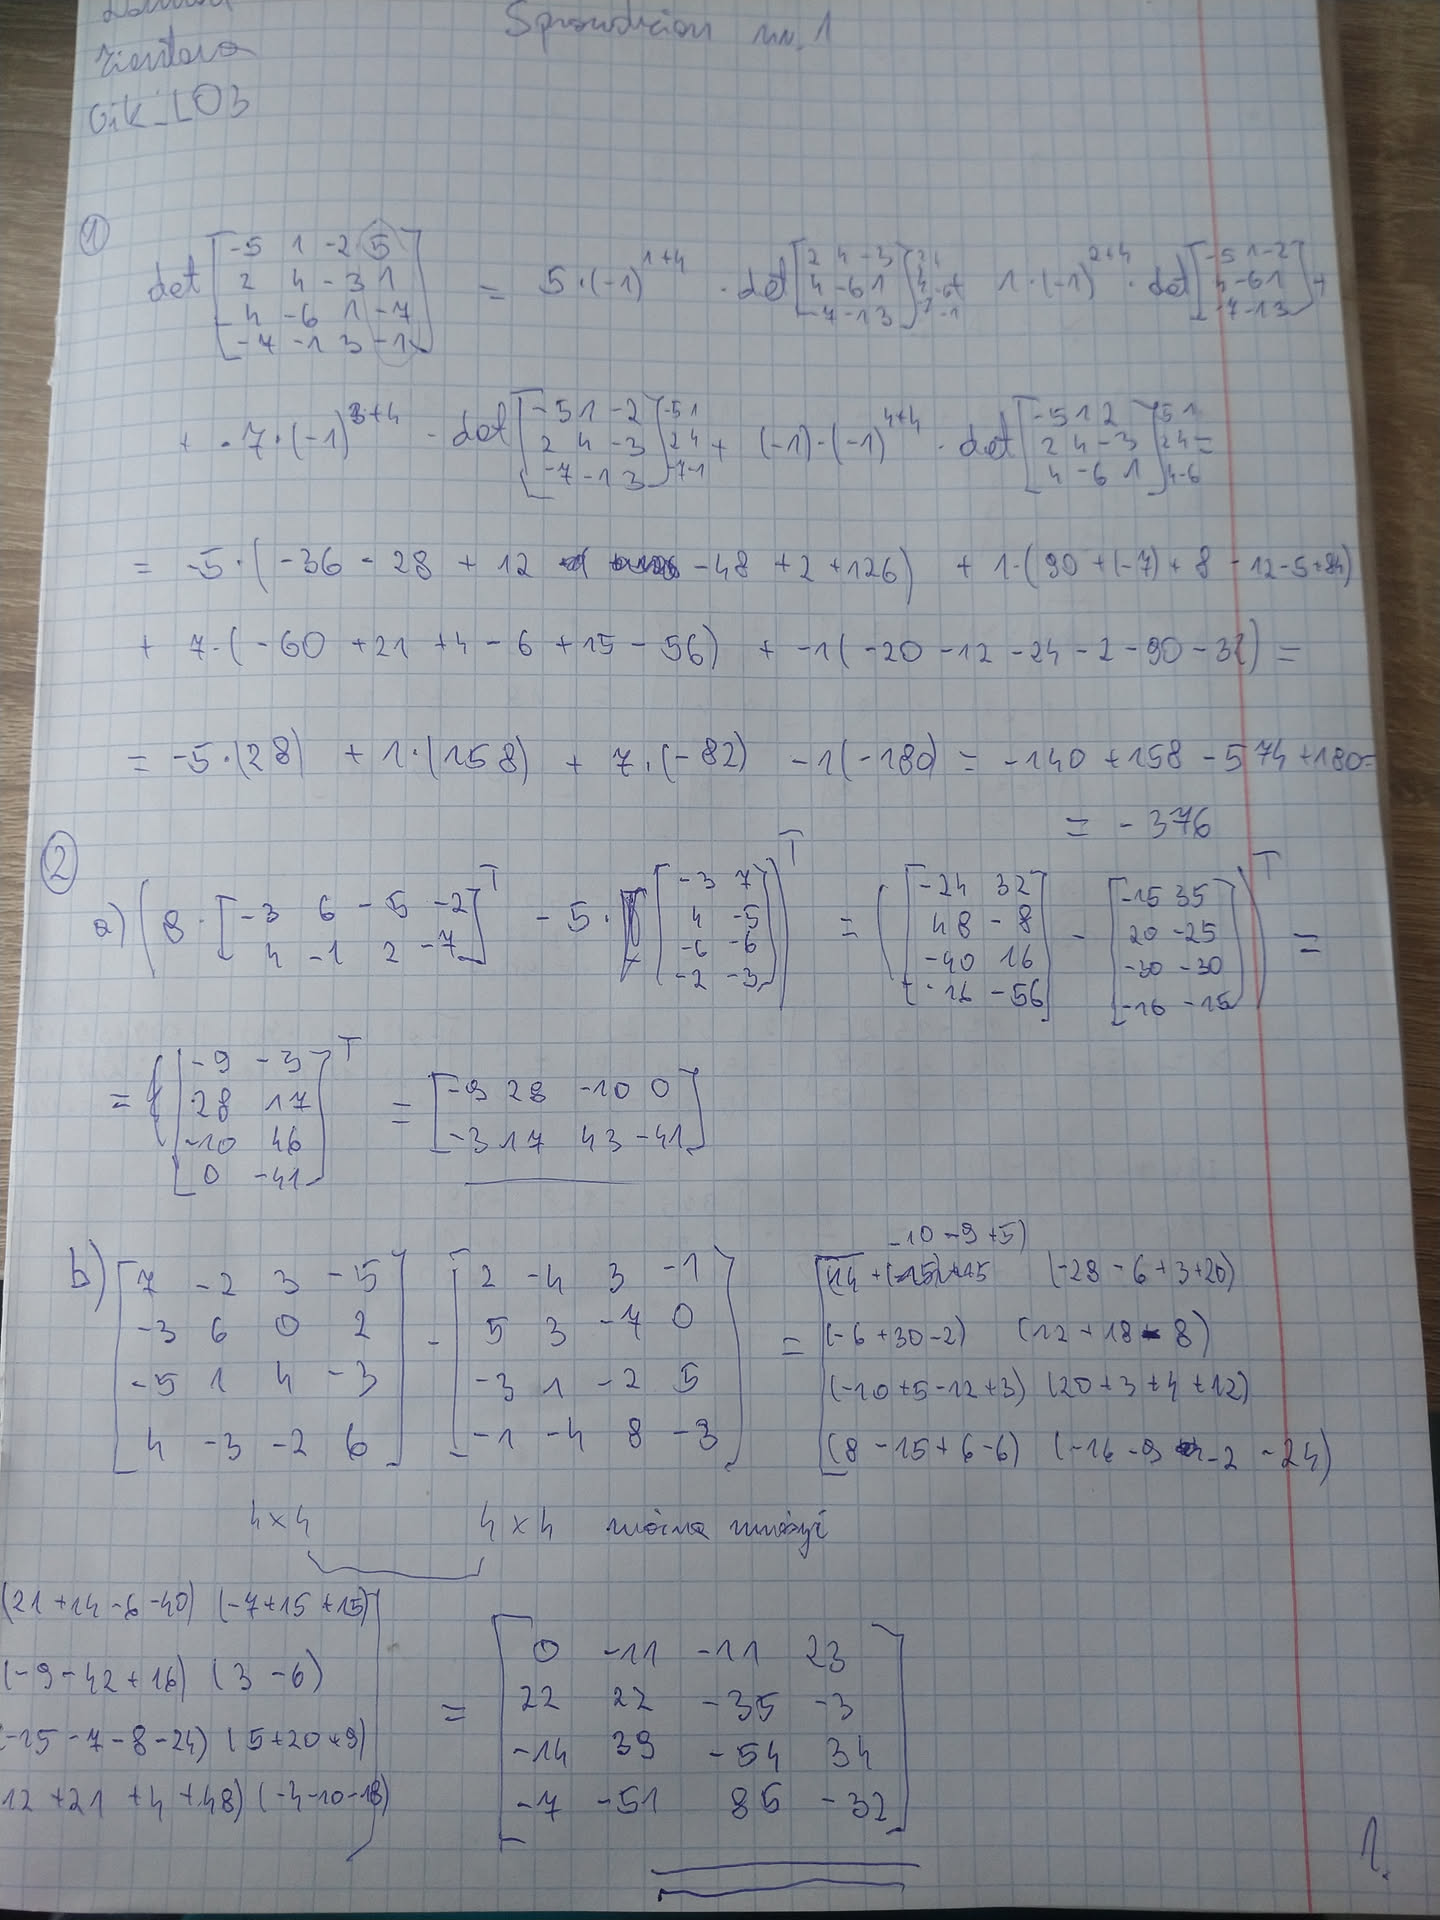 Sprawdzian nr. 1
GiK_L03
① det [-5 1 -2 5; 2 4 -3 1; 4 -6 1 -7; -7 -1 3 -1] = 5·(-1)^{1+4} · det [2 4 -3; 4 -6 1; -7 -1 3] + 1·(-1)^{2+4} · det [-5 1 -2; 4 -6 1; -7 -1 3] +
+ -7·(-1)^{3+4} · det [-5 1 -2; 2 4 -3; -7 -1 3] -5 1; 2 4; -7 -1 + (-1)·(-1)^{4+4} · det [-5 1 2; 2 4 -3; 4 -6 1] 5 1; 2 4; 4 -6 =
= -5·(-36 - 28 + 12 -48 + 2 + 126) + 1·(90 + (-7) + 8 - 12 - 5 + 84)
+ 7·(-60 + 21 + 4 - 6 + 15 - 56) + -1(-20 - 12 - 24 - 2 - 90 - 32) =
= -5·(28) + 1·(158) + 7·(-82) -1(-180) = -140 + 158 - 574 + 180 =
= -376
②
a) (8·[-3 6 -5 -2; 4 -1 2 -7]^T - 5·[-3 7; 4 -5; -6 -6; -2 -3])^T = ([-24 32; 48 -8; -40 16; -16 -56] - [-15 35; 20 -25; -30 -30; -16 -15])^T =
= [-9 -3; 28 17; -10 46; 0 -41]^T = [-9 28 -10 0; -3 17 43 -41]
-10 -9 +5)
b) [7 -2 3 -5; -3 6 0 2; -5 1 4 -3; 4 -3 -2 6] · [2 -4 3 -1; 5 3 -7 0; -3 1 -2 5; -1 -4 8 -3] = [14 (-28 - 6 + 3 + 20)
(-6 + 30 - 2) (12 + 18 - 8)
(-10 + 5 - 12 + 3) (20 + 3 + 4 + 12)
(8 - 15 + 6 - 6) (-16 - 9 -2 - 24)
4×4 4×4 można mnożyć
(21 + 14 - 6 - 40) (-7 + 15 + 15)
(-9 - 42 + 16) (3 - 6)
-15 - 7 - 8 - 24) (5 + 20 + 9)
12 + 21 + 4 + 48) (-4 - 10 - 18)
= [0 -11 -11 23; 22 22 -35 -3; -14 39 -54 34; -7 -51 85 -32]
1.